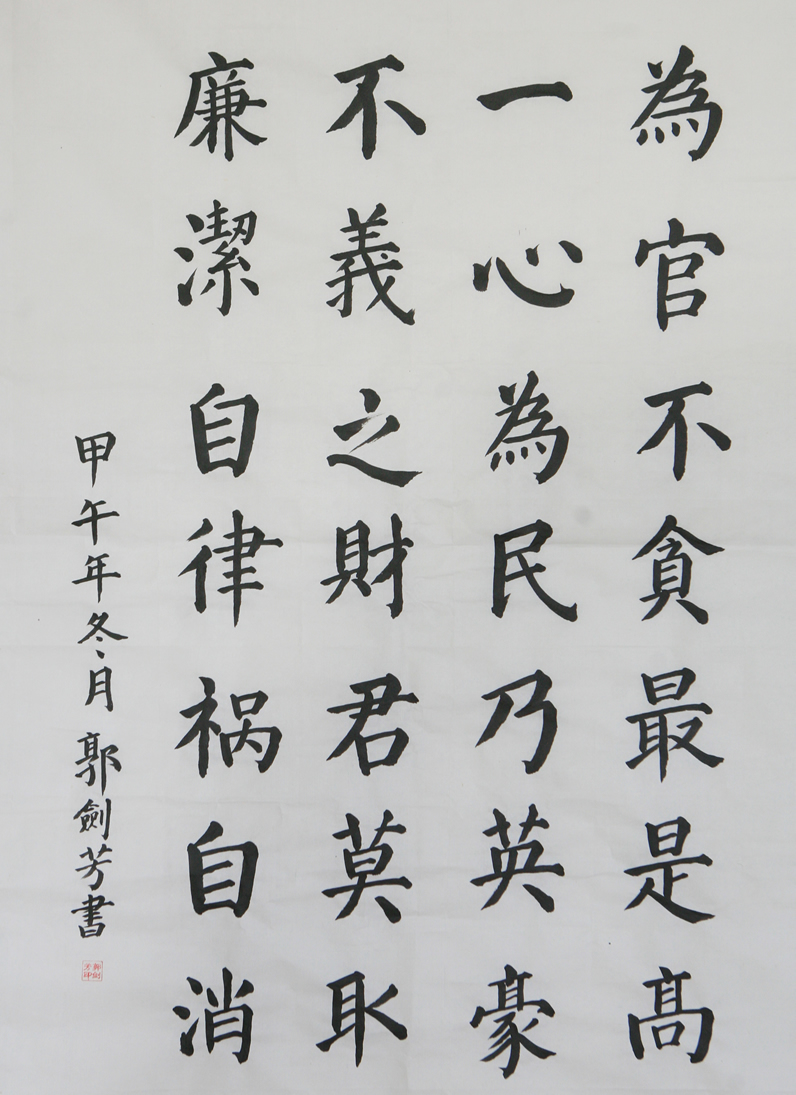 為官不貪最是髙
一心為民乃英豪
不義之財君莫取
廉潔自律祸自消
甲午年冬月 郭劍芳書